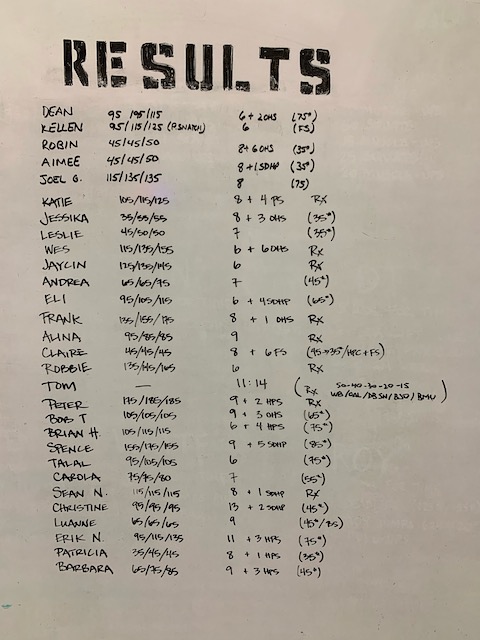 RESULTS
DEAN 95 105/115 6 + 2 OHS (75#)
KELLEN 95/115/125 (P.SNATCH) 6 (FS)
ROBIN 45/45/50 8+6 OHS (35#)
AIMEE 45/45/50 8 + 1 SDHP (35#)
JOEL G. 115/135/135 8 (75)
KATIE 105/115/125 8 + 4 PS RX
JESSIKA 35/55/55 8 + 3 OHS (35#)
LESLIE 45/50/50 7 (35#)
WES 115/135/155 6 + 6 OHS RX
JAYCIN 125/135/145 6 RX
ANDREA 65/65/75 7 (45#)
ELI 95/105/115 6 + 4 SDHP (65#)
FRANK 135/155/175 8 + 1 OHS RX
ALINA 95/85/85 9 RX
CLAIRE 45/45/45 8 + 6 FS (45→35/HPC+FS)
ROBBIE 135/145/165 6 RX
TOM — 11:14 (RX 50-40-30-20-15
WB/CAL/DBSN/BJO/BMU)
PETER 175/185/185 9 + 2 HPS RX
BOB T 105/105/105 9 + 3 OHS (65#)
BRIAN H. 105/115/115 6 + 4 HPS (75#)
SPENCE 155/175/155 9 + 5 SDHP (85#)
TALAL 95/105/105 6 (75#)
CAROLA 75/75/80 7 (55#)
SEAN N. 115/115/115 8 + 1 SDHP RX
CHRISTINE 95/95/95 13 + 2 SDHP (45#)
LUANNE 65/65/65 9 (45#/85)
ERIK N. 95/115/135 11 + 3 HPS (75#)
PATRICIA 35/45/45 8 + 1 HPS (35#)
BARBARA 65/75/85 9 + 3 HPS (45#)